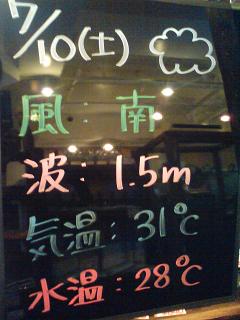 7/10(土)
風：南
波：1.5m
気温：31℃
水温：28℃